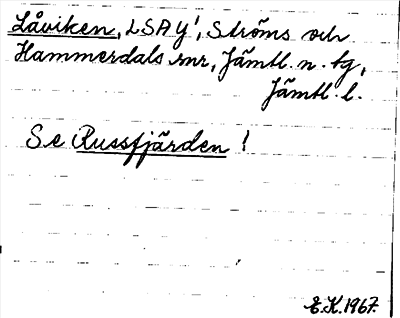 Låviken, LSA y!, Ströms och
Hammerdals snr, Jämtl. n. tg,
Jämtl. l.
Se Russfjärden!
E.K. 1967.